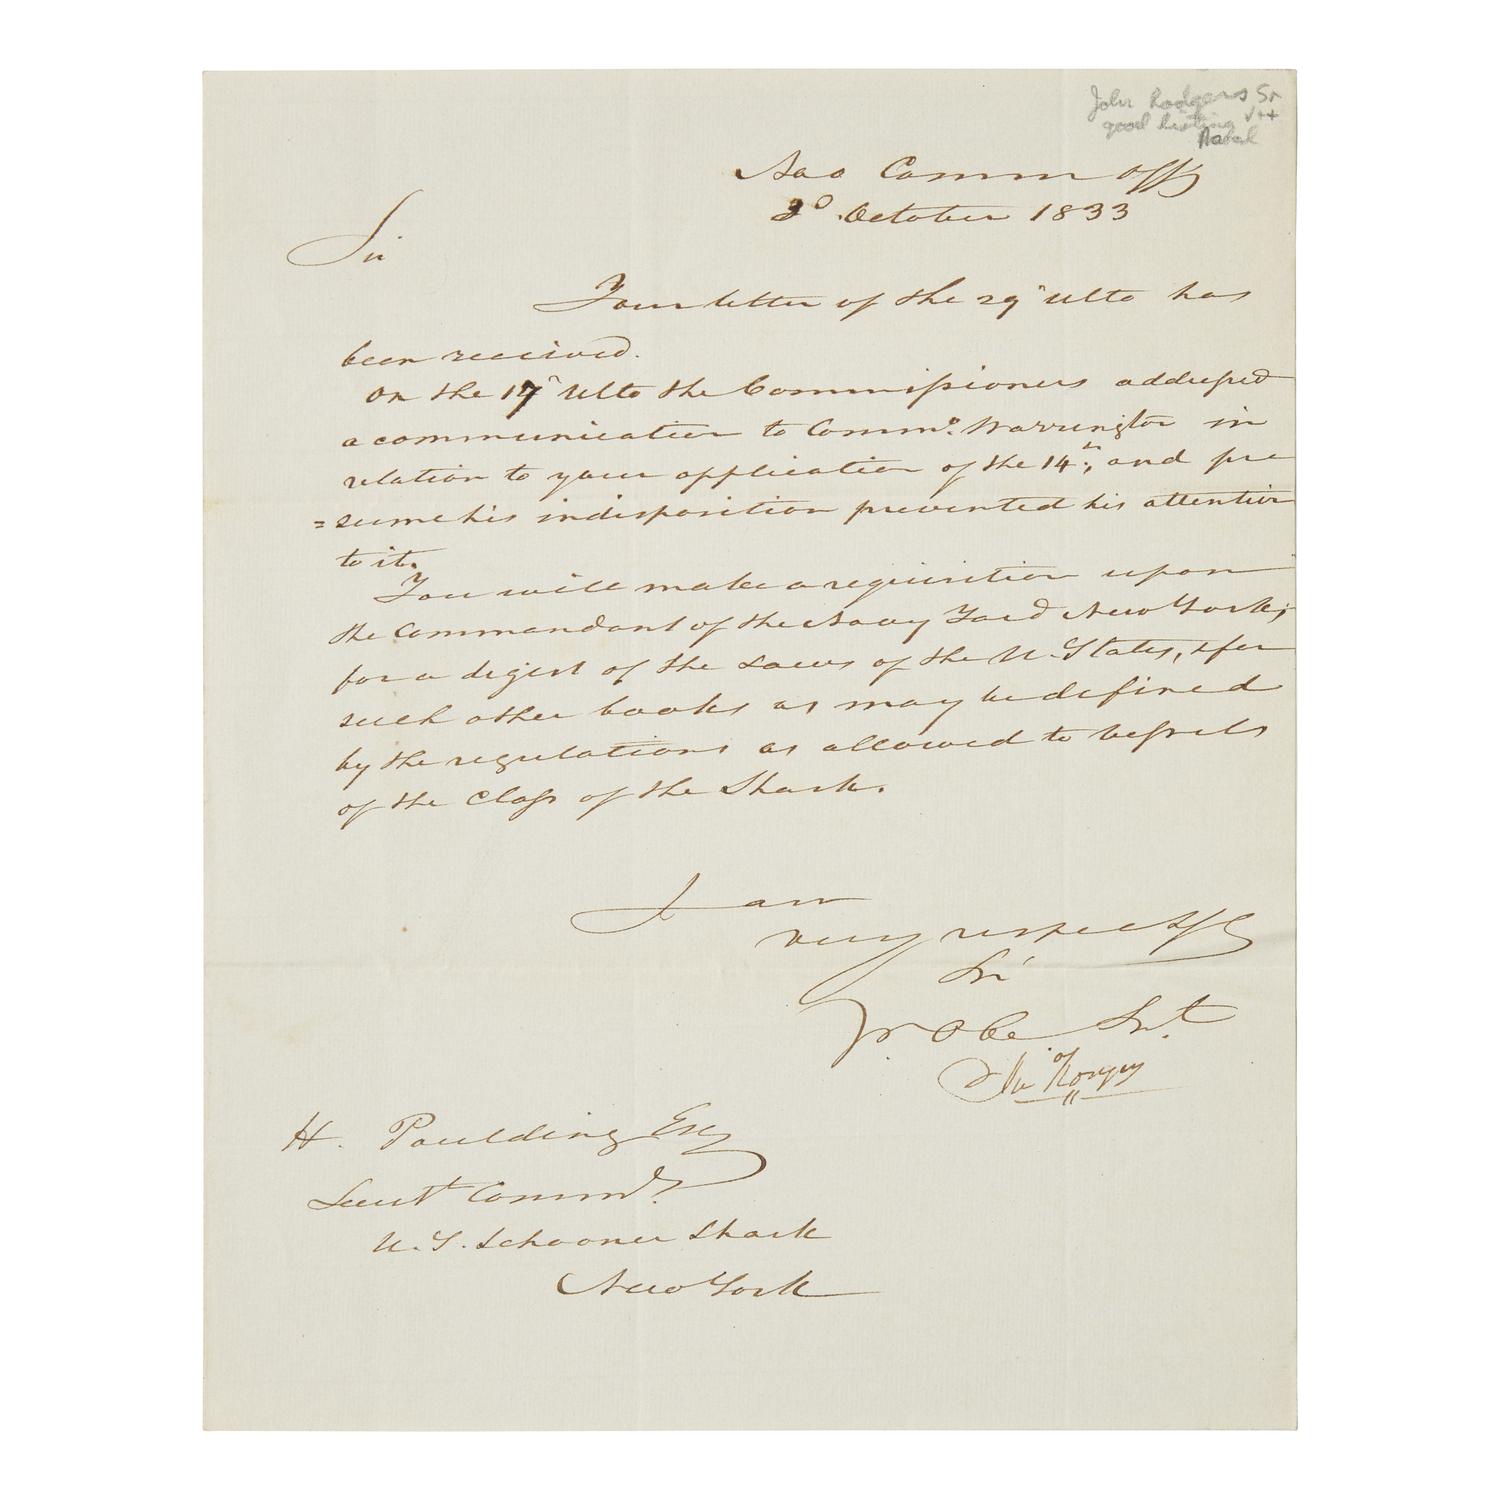 John Rodgers Sr
good V++
Nav Comm Offc
3d October 1833
Sir
Your letter of the 29th ulto has
been received.
On the 17th Ulto the Commissioners addressed
a communication to Commo. Warrington in
relation to your application of the 14th; and pre
=sume his indisposition prevented his attention
to it.
You will make a requisition upon
the Commandant of the Navy Yard New York,
for a digest of the Laws of the U. States, & for
such other books as may be defined
by the regulations as allowed to vessels
of the Class of the Shark.
I am
very respectfy
Sir
Yr. Obe Srt.
Jno Rodgers
H. Paulding Esq
Lieut Commdt
U. S. Schooner Shark
New York